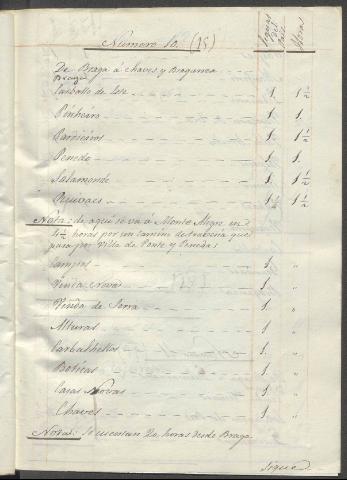 Número 10. (15)
Leguas Del País
Horas
De Braga á Chaves y Braganza
Braga
Carballo de Este 1. 1 1/2
Pinheiro 1 1.
1 1 1/2
Penedo 1 1.
Salamonde 1 1 1/2
Ruivaes 1 1/2
Nota: de aquí se va á Monte Alegre en
4 1/2 horas por un camino de travesía que
pasa por Villa de Ponte y Penedas
Campos 1. "
Venda Nova 1. "
Venda de Serra 1. "
Alturas 1. "
Carbalhellos 1. "
Boticas 1. "
Casas Novas 1. "
Chaves 1. "
Nota: Se cuentan 20 horas desde Braga.
Sigue